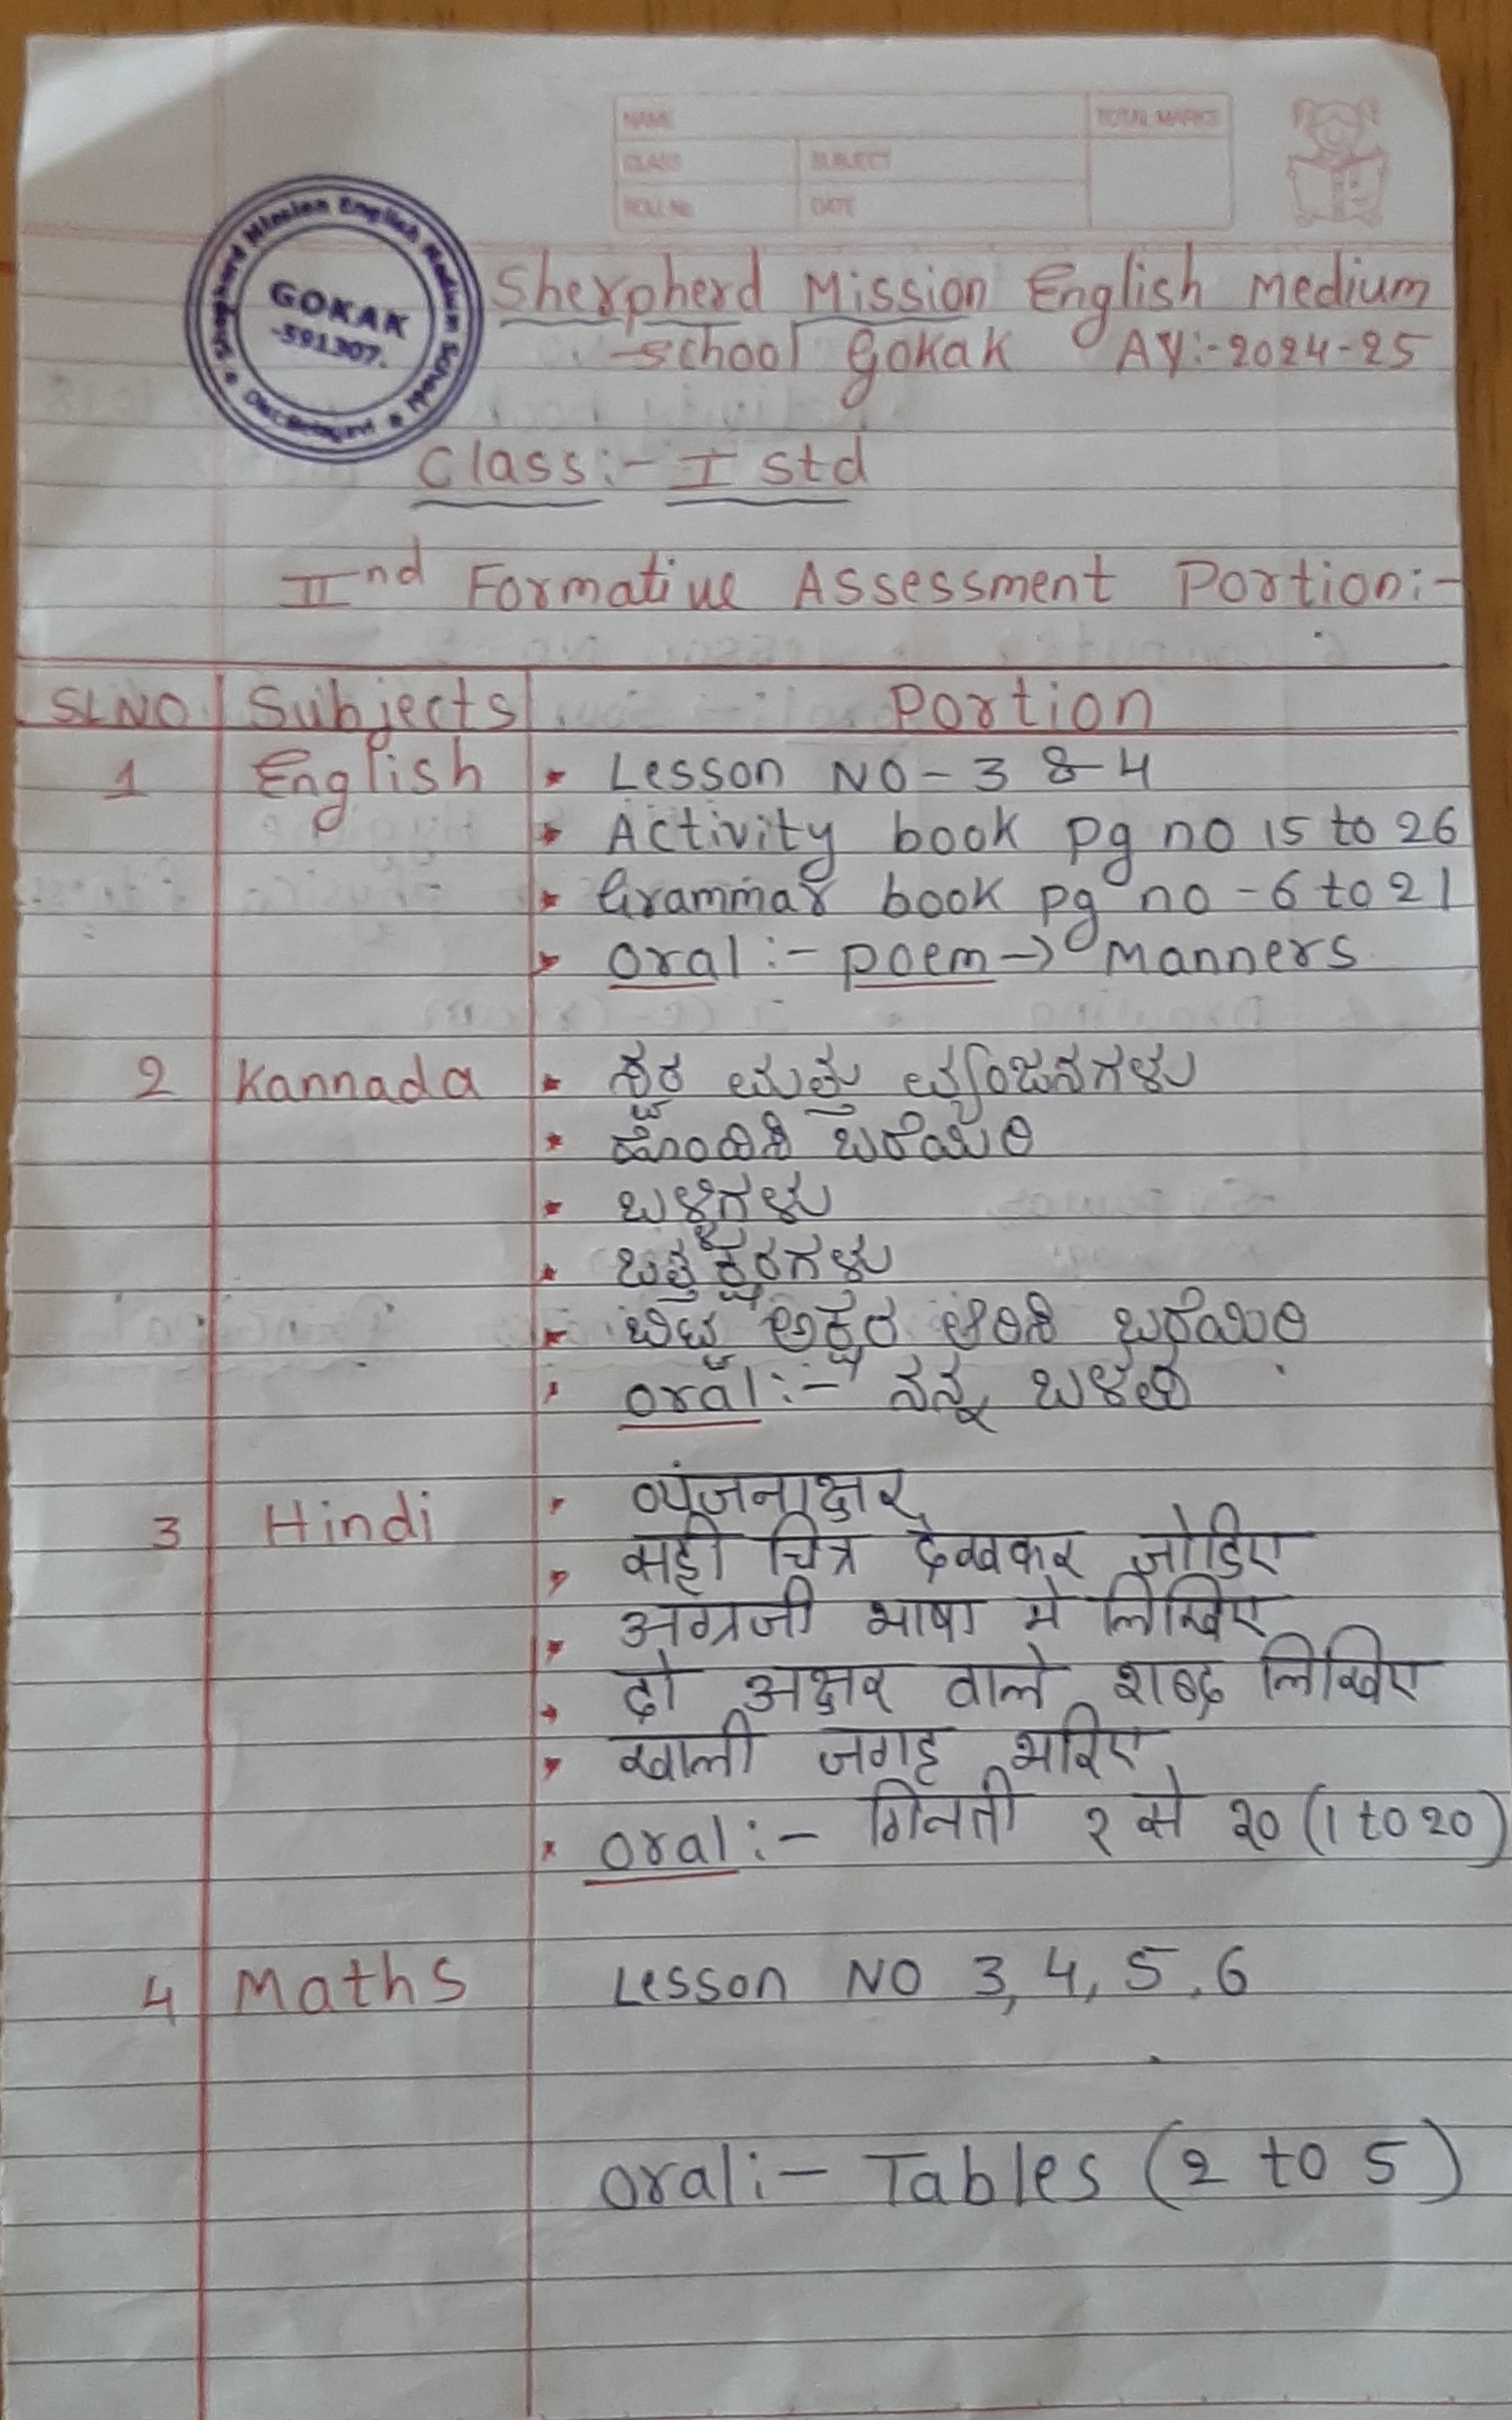 NAME
TOTAL MARKS
CLASS
SUBJECT
ROLL No
DATE
Shepherd Mission English Medium School
GOKAK
-591307.
Sherpherd Mission English Medium
School Gokak AY:-2024-25
Class:- I std
IInd Formative Assessment Portion:-
SL NO Subjects Portion
1 English • Lesson NO - 3 & 4
• Activity book pg no 15 to 26
• Grammar book pg no - 6 to 21
• oral :- poem → Manners
2 Kannada • ಸ್ವರ ಮತ್ತು ವ್ಯಂಜನಗಳು
• ಹೊಂದಿಸಿ ಬರೆಯಿರಿ
• ಬಳ್ಳಿಗಳು
• ಒತ್ತಕ್ಷರಗಳು
• ಬಿಟ್ಟ ಅಕ್ಷರ ಆರಿಸಿ ಬರೆಯಿರಿ
• oral :- ನನ್ನ ಬಳಪ
3 Hindi • व्यंजनाक्षर
• सही चित्र देखकर जोडिए
• अंग्रजी भाषा मे लिखिए
• दो अक्षर वाले शब्द लिखिए
• खाली जगह भरिए
• oral :- गिनती १ से २० (1 to 20)
4 Maths Lesson NO 3, 4, 5, 6
oral :- Tables (2 to 5)